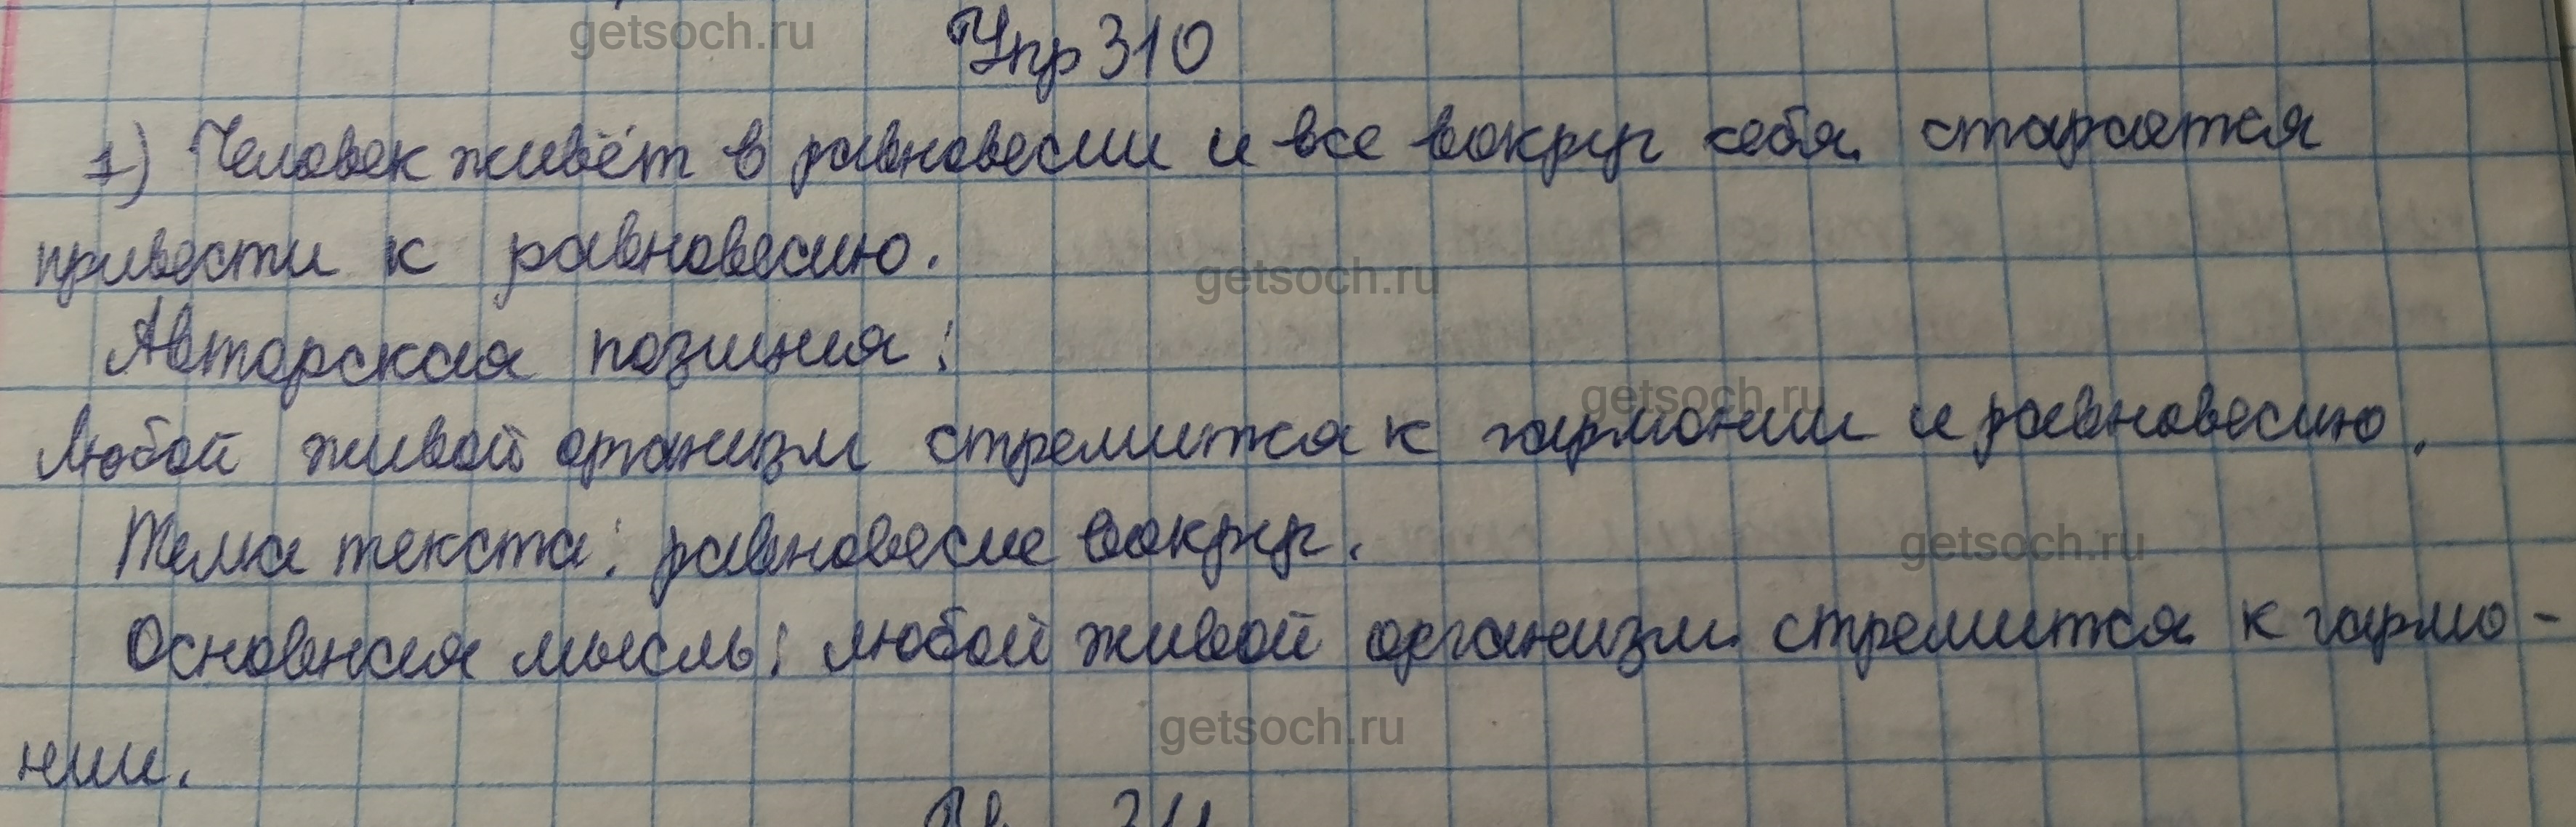 Упр 310
1) Человек живёт в равновесии и все вокруг себя старается
привести к равновесию.
Авторская позиция:
Любой живой организм стремится к гармонии и равновесию.
Тема текста: равновесие вокруг.
Основная мысль: любой живой организм стремится к гармо-
нии.
getsoch.ru
getsoch.ru
getsoch.ru
getsoch.ru
getsoch.ru